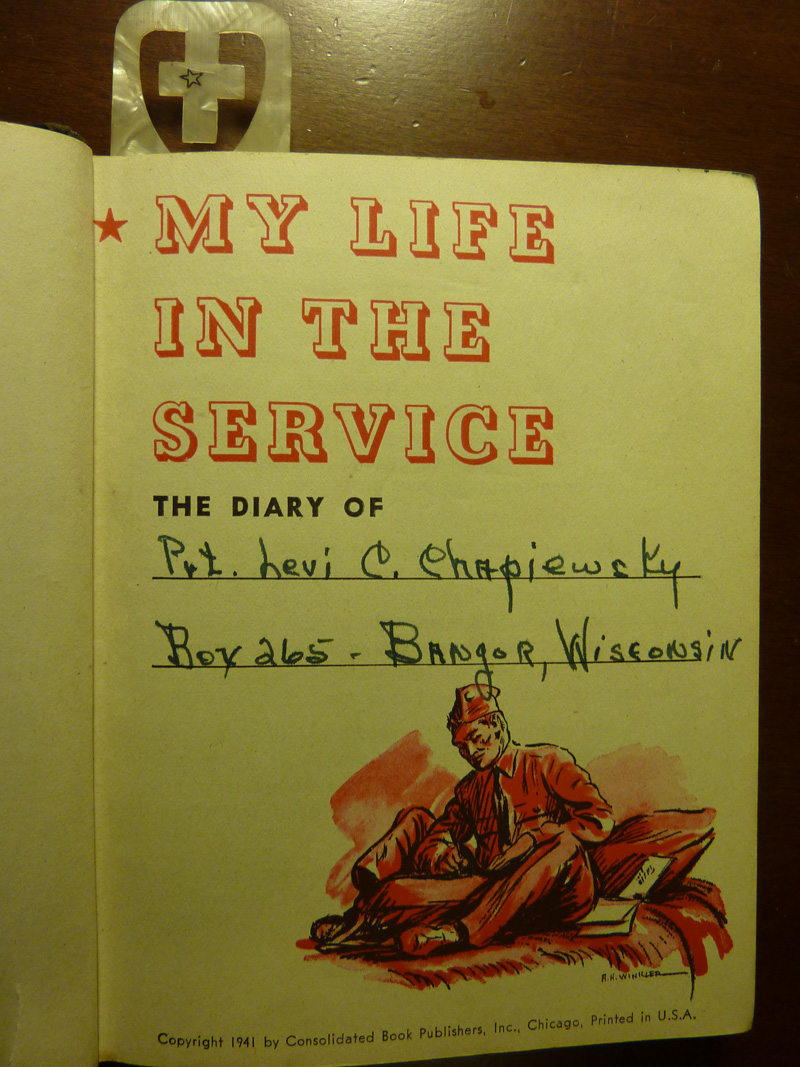 MY LIFE
IN THE
SERVICE
THE DIARY OF
Pvt. Levi C. Chapiewsky
Box 265 - Bangor, Wisconsin
R.H. WINKLER
Copyright 1941 by Consolidated Book Publishers, Inc., Chicago, Printed in U.S.A.